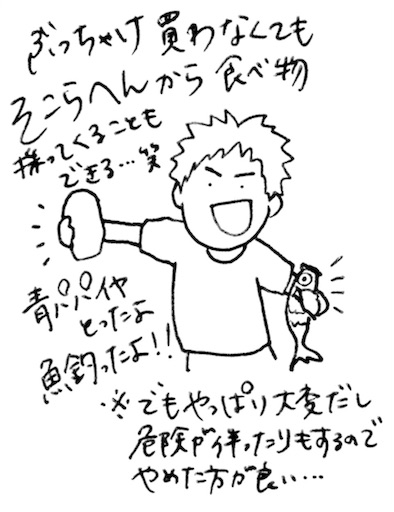 ぶっちゃけ 買わなくても
そこらへんから 食べ物
採ってくることも
できる…笑
青パパイヤ
とったよ
魚釣ったよ!!
※でもやっぱり大変だし
危険が伴ったりもするので
やめた方が良い…